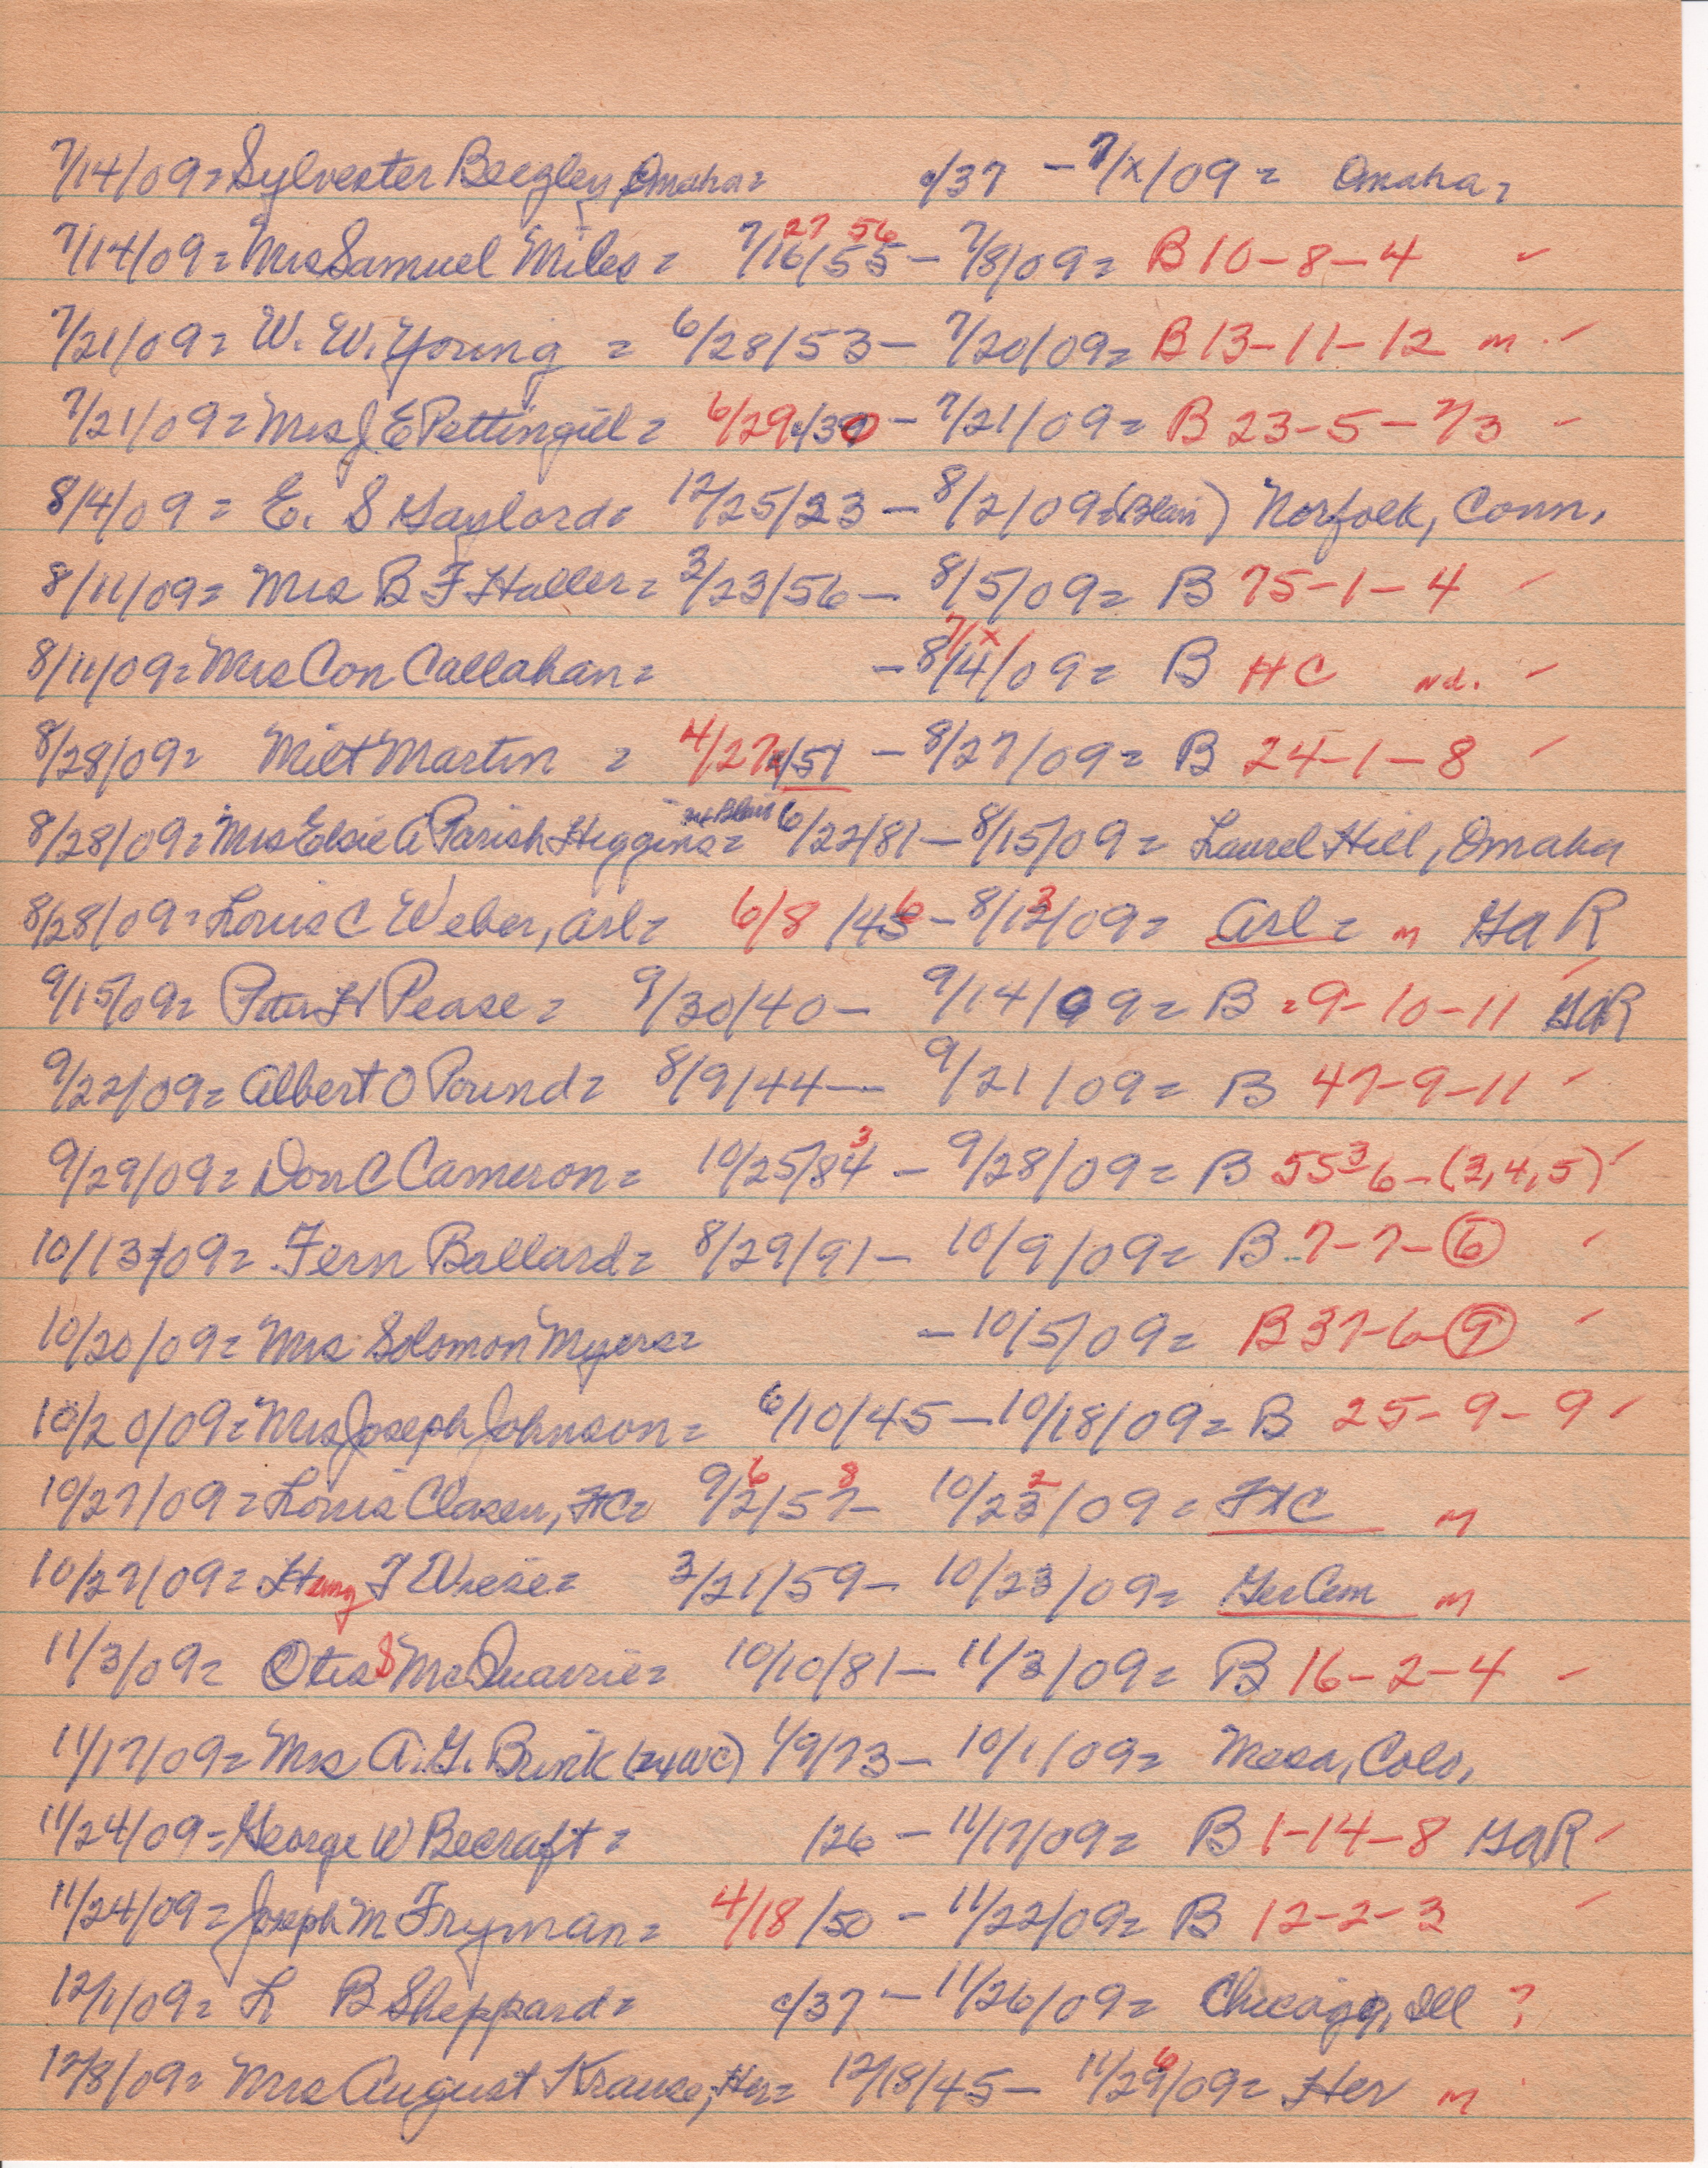 7/14/09= Sylvester Beegley, Omaha= c/37 - 7/x/09= Omaha=
27 56
7/14/09= Mrs Samuel Miles= 7/16/55 - 7/8/09= B 10-8-4 ✓
7/21/09= W. W. Young = 6/28/53 - 7/20/09= B 13-11-12 m. ✓
7/21/09= Mrs J E Pettingill= 6/29/30 - 7/21/09= B 23-5-7/3 ✓
8/4/09= E. S Gaylord= 12/25/23 - 8/2/09= (Blair) Norfolk, Conn.
8/11/09= Mrs B F Haller= 3/23/56 - 8/5/09= B 75-1-4 ✓
7/x/
8/11/09= Mrs Con Callahan= - 8/4/09= B HC nd. ✓
8/28/09= Milt Martin = 4/27/51 - 8/27/09= B 24-1-8 ✓
8/28/09= Mrs Elsie A Parish Higgins= 6/22/81 - 8/15/09= Laurel Hill, Omaha
6 3
8/28/09= Louis C Weber, Arl= 6/8/43 - 8/12/09= Arl= m GAR
9/15/09= Peter H Pease= 9/30/40 - 9/14/09= B =9-10-11 GAR ✓
9/22/09= Albert O Pound= 8/9/44 - 9/21/09= B 47-9-11 ✓
3 3
9/29/09= Don C Cameron= 10/25/84 - 9/28/09= B 55-6-(3,4,5) ✓
10/13/09= Fern Ballard= 8/29/91 - 10/9/09= B 7-7-6 ✓
10/20/09= Mrs Solomon Myers= - 10/5/09= B 37-6-9 ✓
10/20/09= Mrs Joseph Johnson= 6/10/45 - 10/18/09= B 25-9-9 ✓
6 8 2
10/27/09= Louis Clasen, FtC= 9/2/57 - 10/23/09= FtC m
10/27/09= Henry F Wiese= 3/21/59 - 10/23/09= Ger Cem m
11/3/09= Otis S McQuarrie= 10/10/81 - 11/3/09= B 16-2-4 ✓
11/17/09= Mrs A. G. Bunk 1/9/73 - 10/1/09= Mesa, Colo,
11/24/09= George W Becraft= /26 - 11/17/09= B 1-14-8 GAR ✓
11/24/09= Joseph M Fryman= 4/18/50 - 11/22/09= B 12-2-3 ✓
12/1/09= L B Sheppard= c/37 - 11/26/09= Chicago, Ill ?
6
12/8/09= Mrs August Krause, Her= 12/18/45 - 11/29/09= Her m